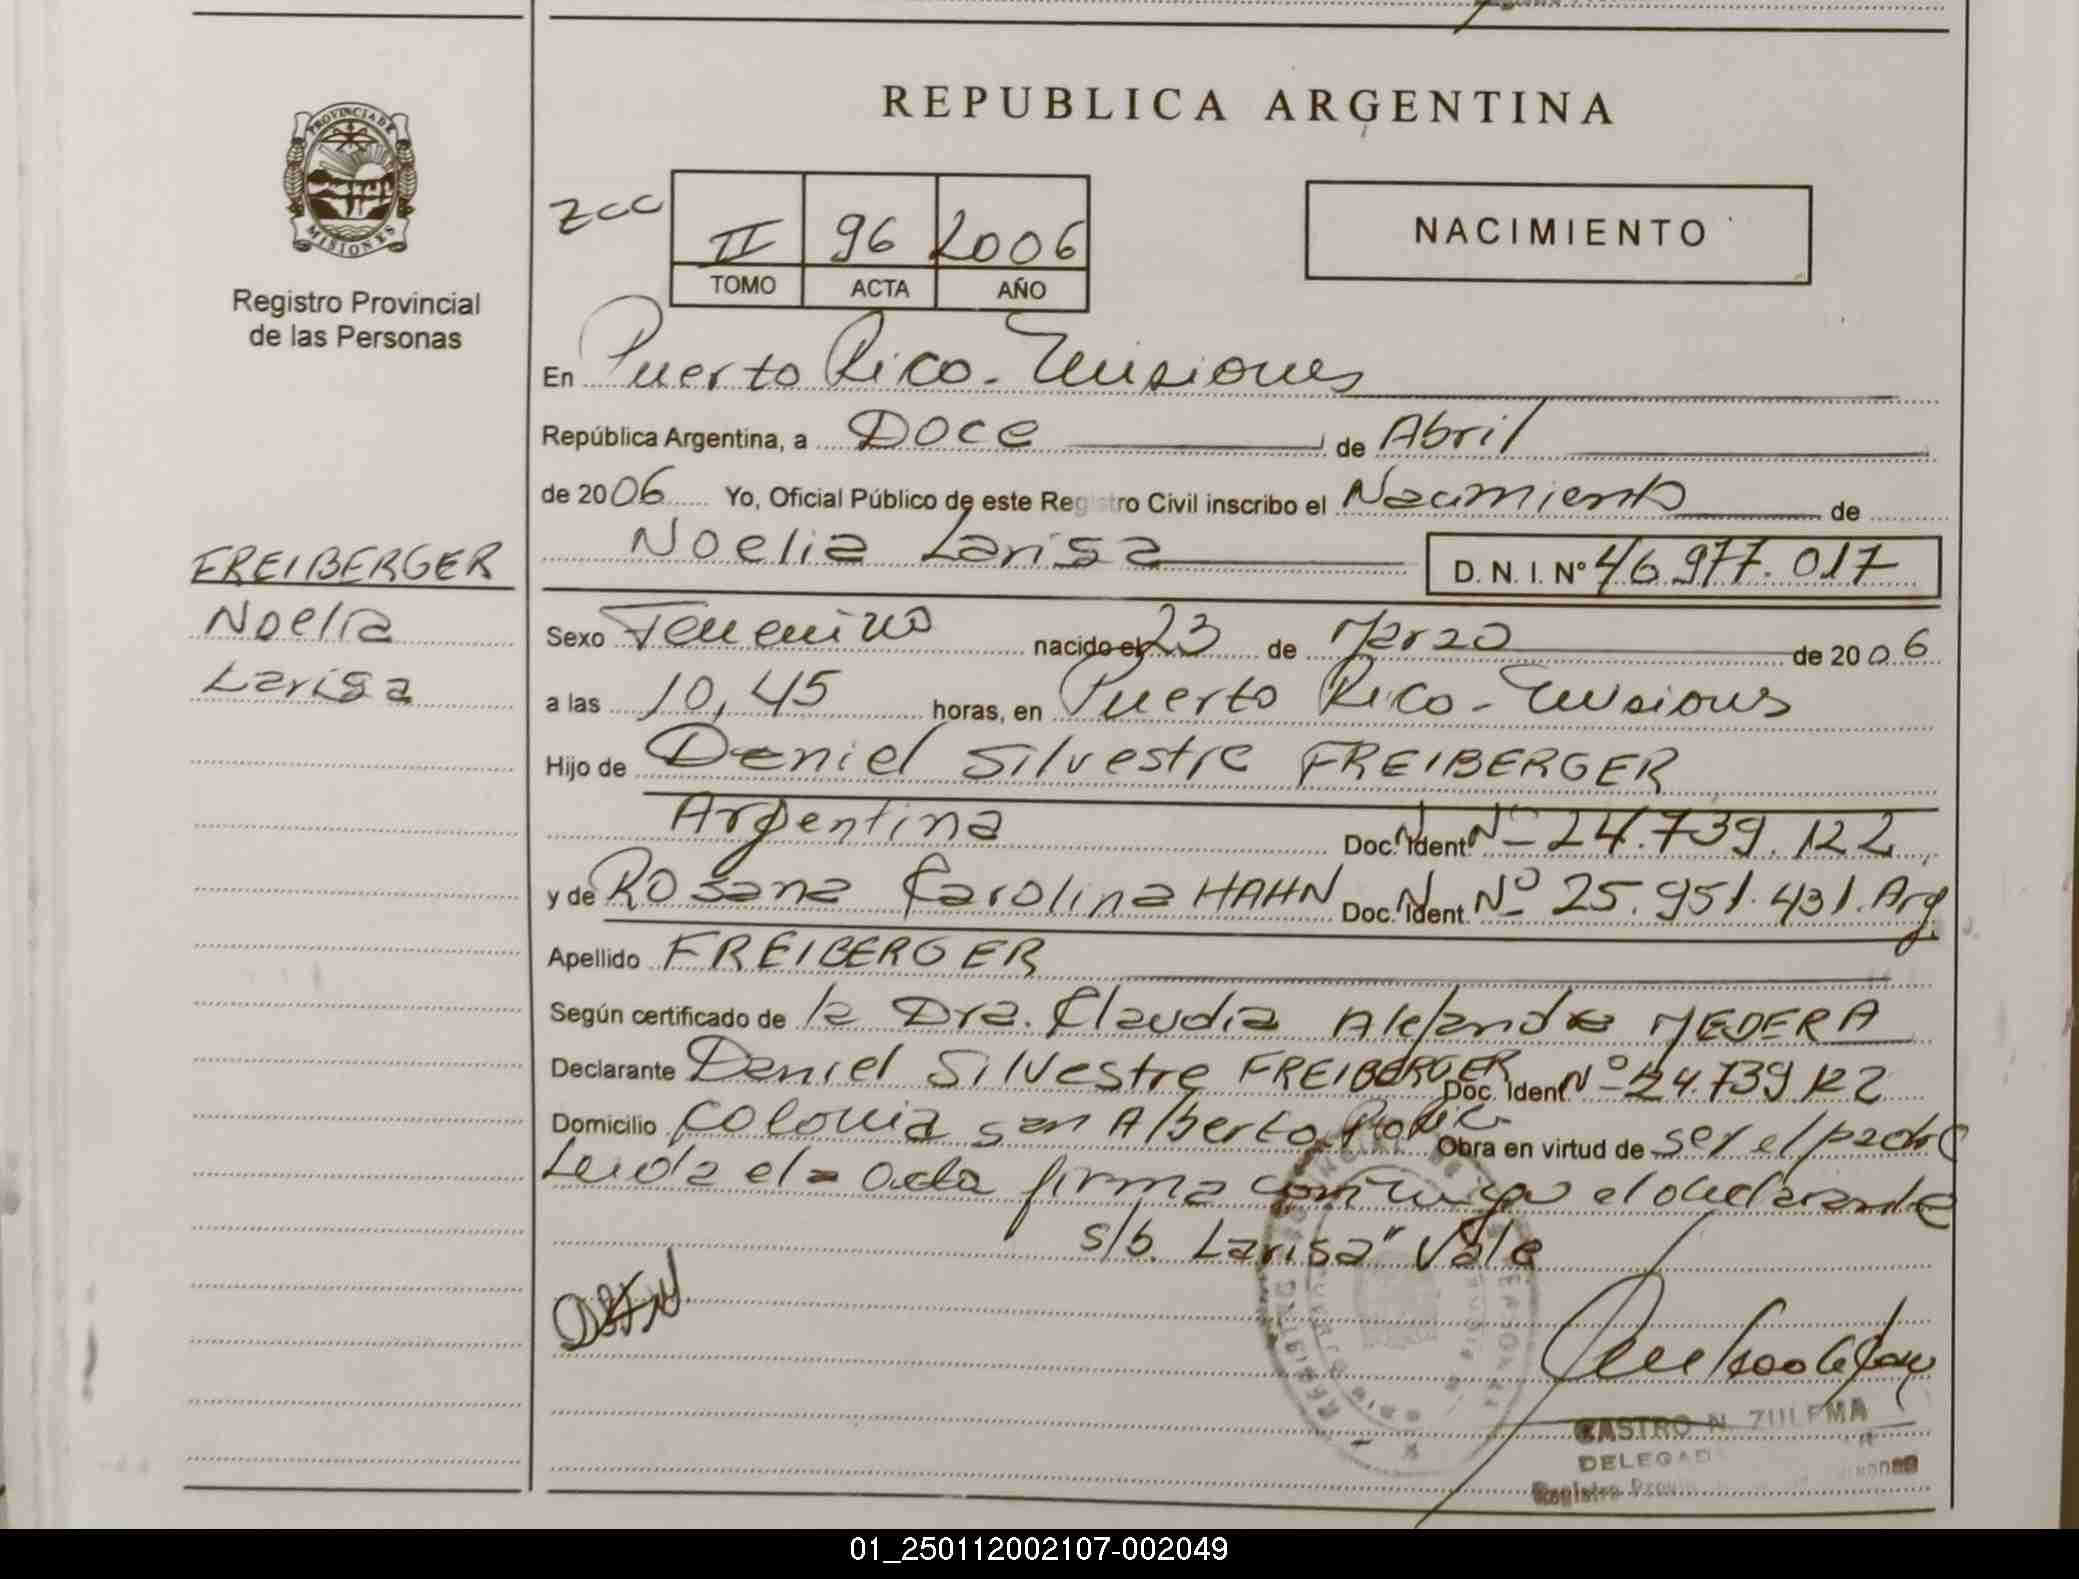 REPUBLICA ARGENTINA
PROVINCIA DE
MISIONES
Registro Provincial
de las Personas
zcc
II 96 2006
TOMO ACTA AÑO
NACIMIENTO
En Puerto Rico - Misiones
República Argentina, a Doce de Abril
de 2006 Yo, Oficial Público de este Registro Civil inscribo el Nacimiento de
Noelia Larisa D. N. I. Nº 46.977.017
FREIBERGER
Noelia
Larisa
Sexo Femenino nacido el 23 de Marzo de 2006
a las 10,45 horas, en Puerto Rico - Misiones
Hijo de Daniel Silvestre FREIBERGER
Argentina Doc. Ident. Nº 24.739.122
y de Rosana Carolina HAHN Doc. Ident. Nº 25.951.431. Arg.
Apellido FREIBERGER
Según certificado de la Dra. Claudia Alejandra MEDERA
Declarante Daniel Silvestre FREIBERGER Doc. Ident. Nº 24.739.122
Domicilio Colonia San Alberto Obra en virtud de ser el padre
Leida el acta firma conmigo el declarante
s/b. Larisa" Vale
CASTRO N. ZULEMA
DELEGAD
Registro Provin
01_250112002107-002049